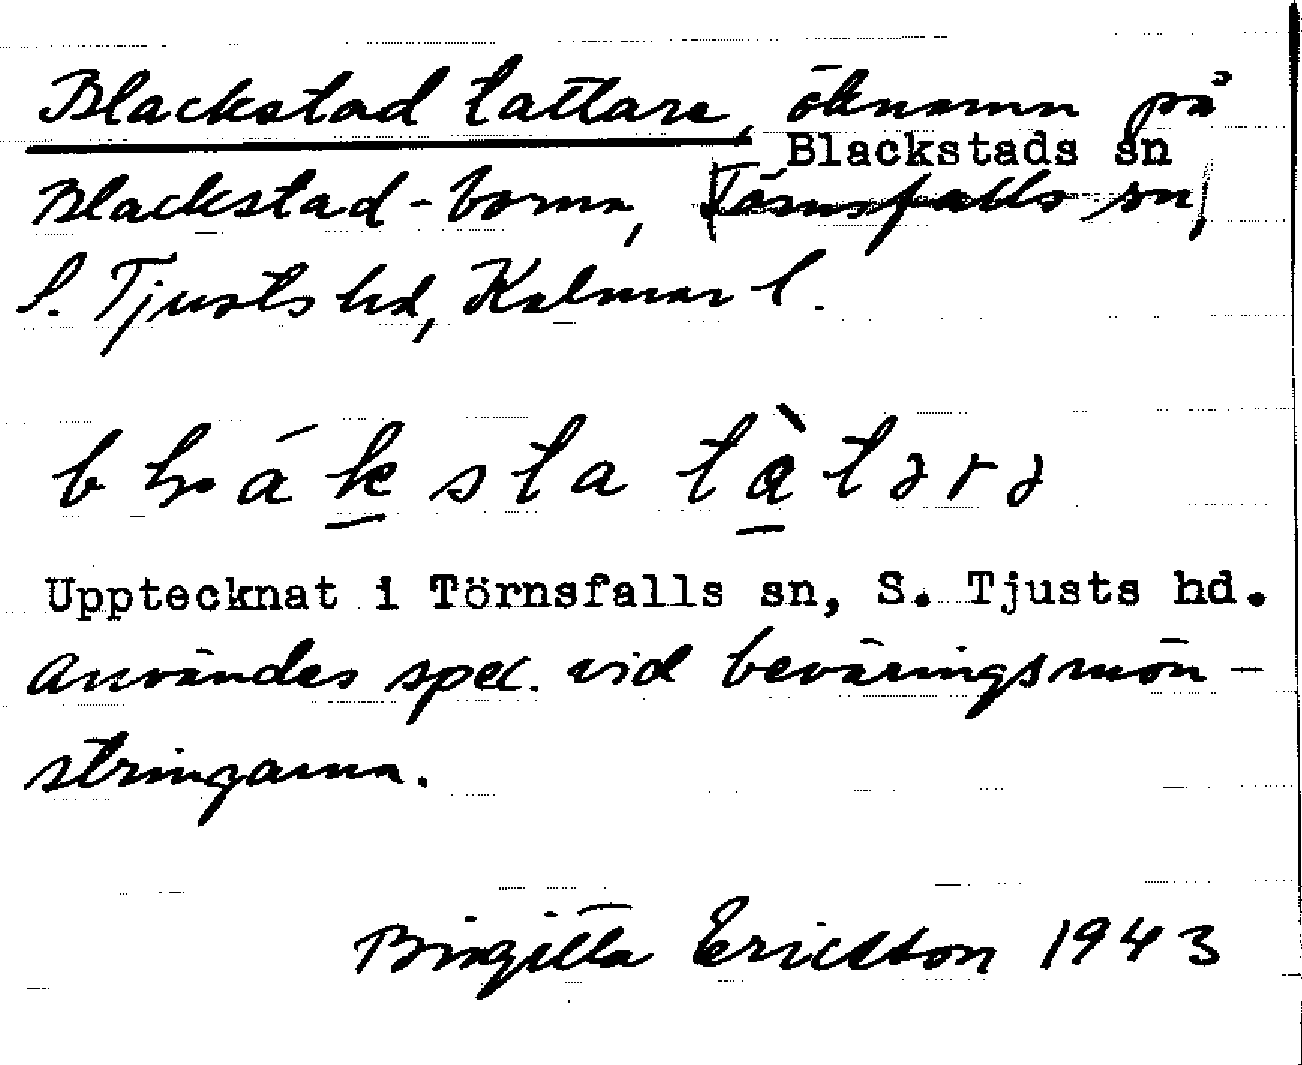 Blackstad tattare, öknamn på
Blackstads sn
Blackstad-borna, [Törnsfalls sn],
S. Tjusts hd, Kalmar l.
bláksta tàtərə
Upptecknat i Törnsfalls sn, S. Tjusts hd.
Användes spec. vid beväringsmön-
stringarna.
Birgitta Ericsson 1943